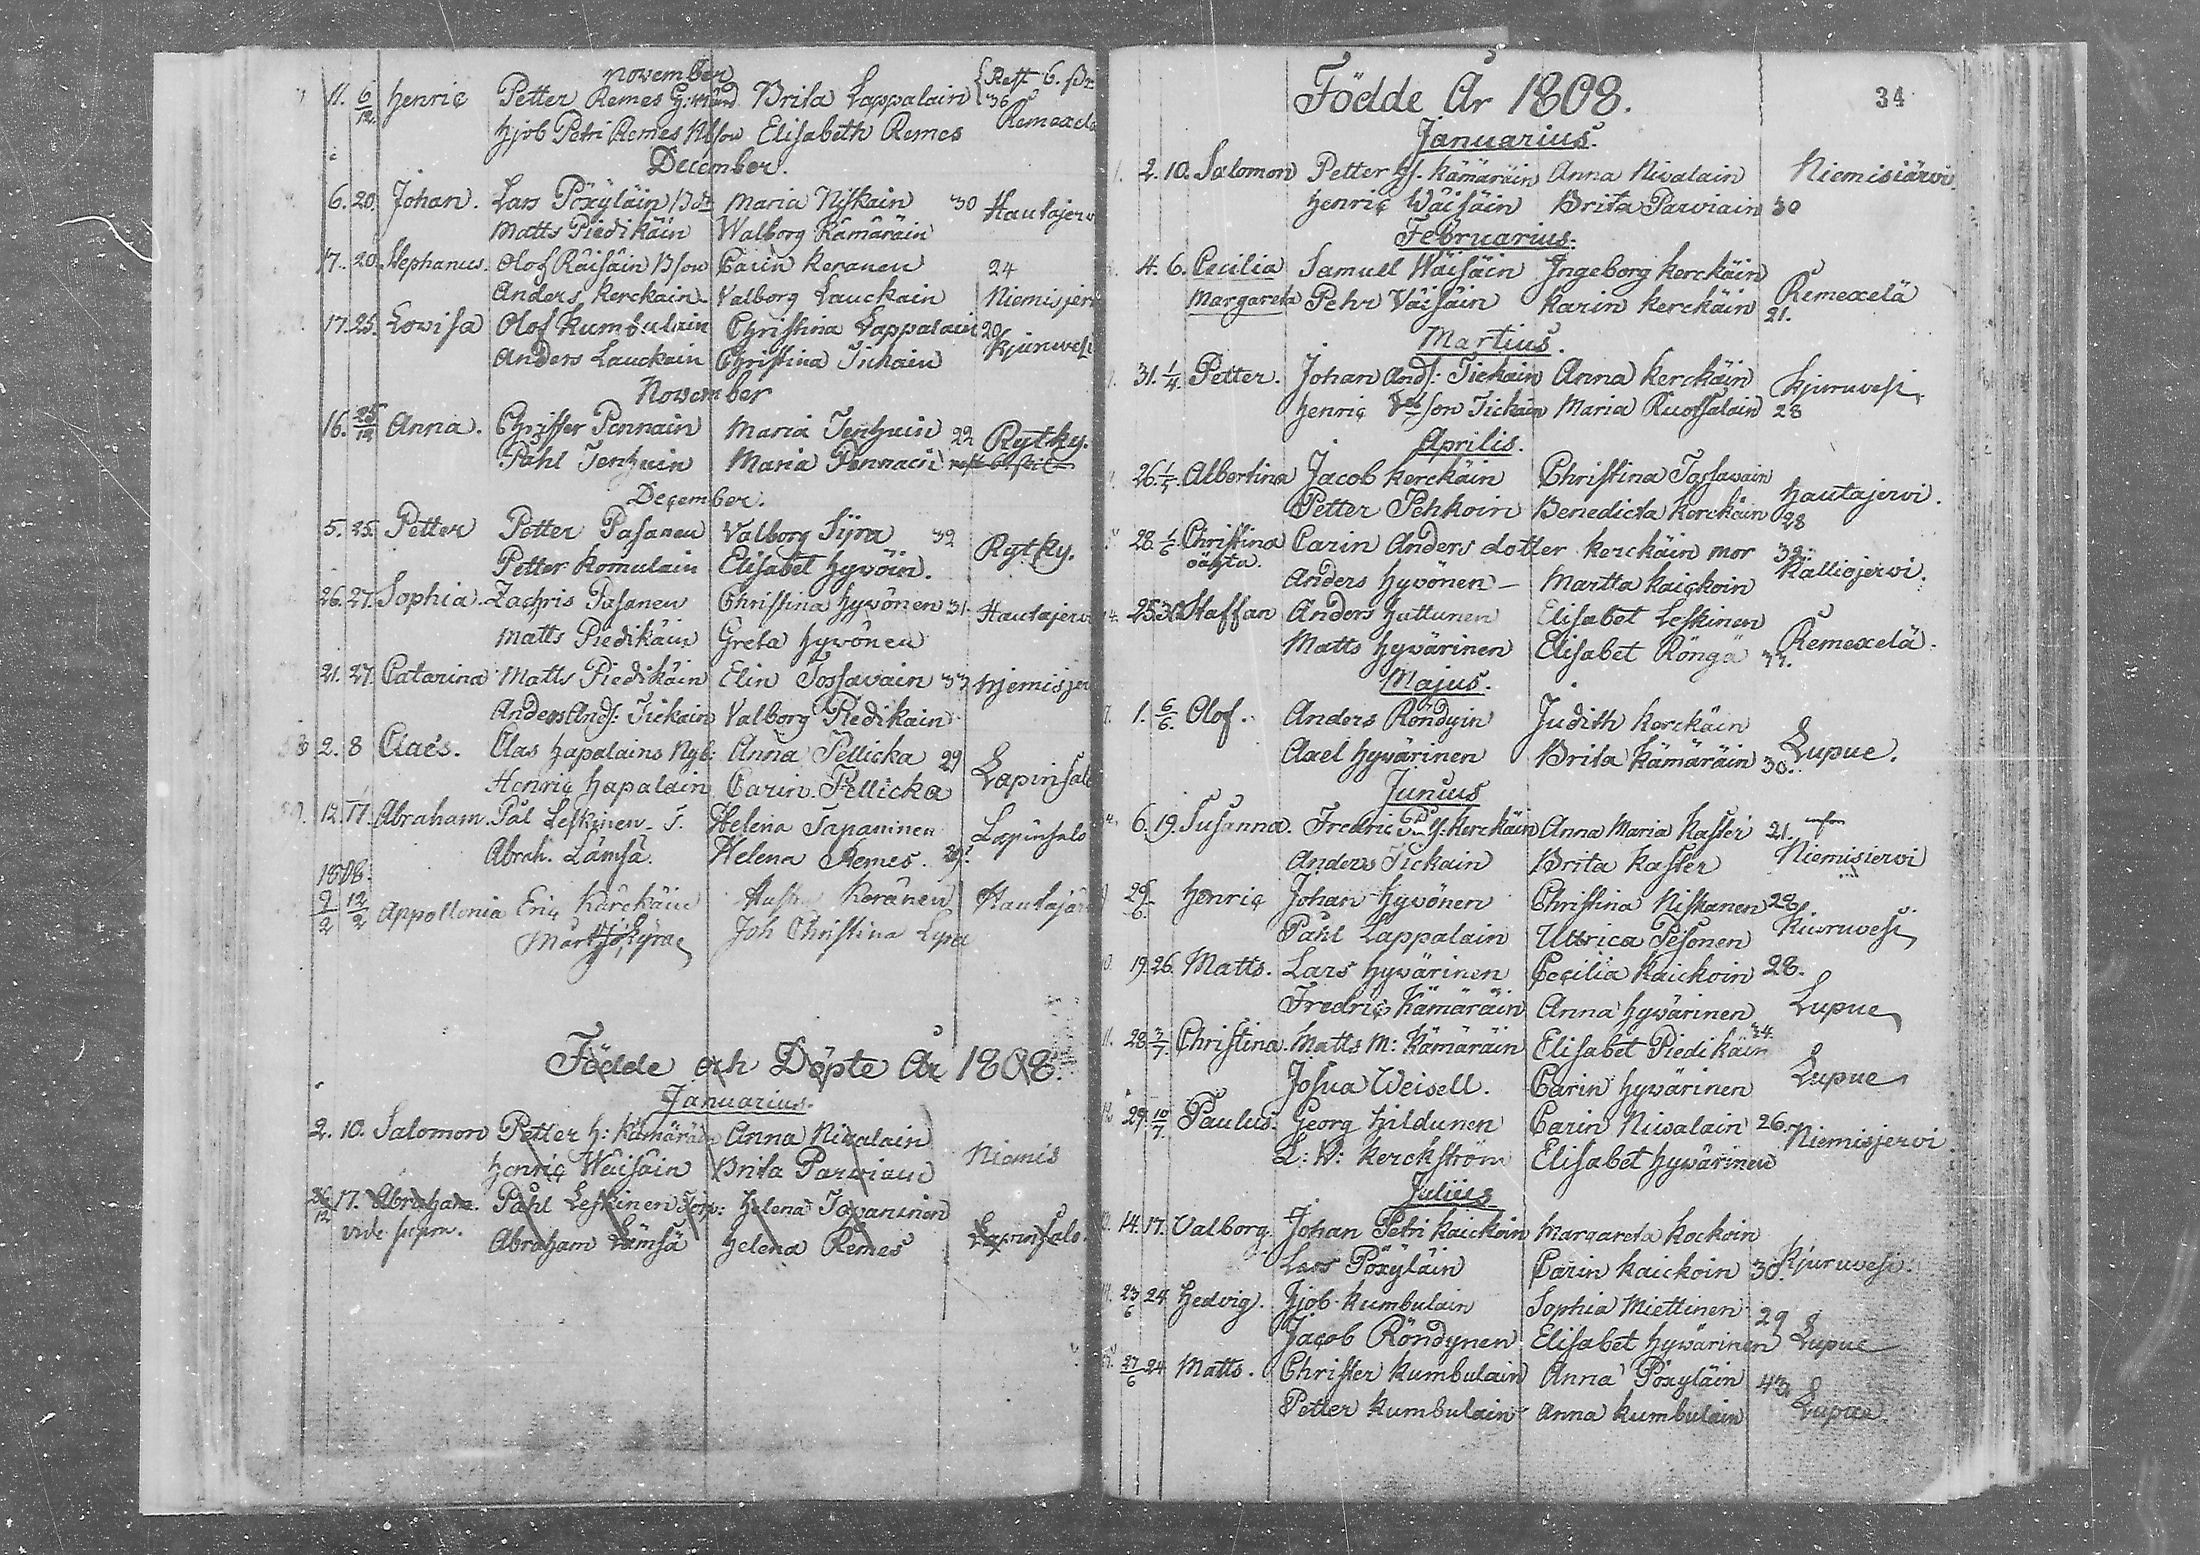 november
11. 6/12. Henric Petter Remes Brita Lappalain
Hjob Petri Remes Elisabeth Remes 36 Remexelä
December.
6. 20. Johan. Lars Pöxyläin Maria Niskain 30 Hautajerv
Matts Piedikäin Walborg Kämäräin
17. 20. Stephanus. Olof Räisäin Carin Keranen 24
Anders Kerckain Valborg Lauckain Niemisjer
17. 25. Lovisa Olof Kumbulain Christina Lappalain 20
Anders Lauckain Christina Tickain Kjuruvesi
November
16. 25/12 Anna. Christer Pennain Maria Jenhuin 22 Rytky.
Pahl Jenhuin Maria Pennain
December.
5. 25. Petter Petter Pasanen Valborg Lyra 32 Rytky.
Petter Komulain Elisabet Hyvöin.
26. 27. Sophia. Zachris Pasanen Christina Hyvönen 31. Hautajerv
Matts Piedikäin Greta Hyvönen
21. 27. Catarina Matts Piedikäin Elin Tossavain 33 Njemisjer
Anders And: Tickain Valborg Piedikain
2. 8 Claës. Clas Hapalains Nyb: Anna Pellicka 29 Lapinsalo
Henric Hapalain Carin Pellicka
12. 17. Abraham. Pål Leskinen T. Helena Tapaninen Lapinsalo
Abrah. Lämsä. Helena Remes. 29.
1808.
9/2 12/2 Appollonia Eric Kärckäin Keränen Hautajär
Christina Lyra
Födde och Döpte År 1808.
Januarius.
2. 10. Salomon Petter H: Kämäräin Anna Nivalain
Henric Wäisäin Brita Parviain Niemis
17. Abraham. Pahl Leskinen Torp: Helena Tapaninen
vide supra. Abraham Lämsä Helena Remes Lapinsalo.
Födde År 1808. 34
Januarius.
2. 10. Salomon Petter Kämäräin Anna Nivalain Niemisiärvi
Henric Wäisäin Brita Parviain 30
Februarius.
4. 6. Cecilia Samuel Wäisäin Ingeborg Kerckäin Remexelä
Margareta Pehr Väisäin Karin Kerckäin 21.
Martius.
31. 1/4. Petter. Johan And: Tickain Anna Kerckäin Kjuruvesi
Henric Tickain Maria Ruotsalain 28
Aprilis.
26. 1/5. Albertina Jacob Kerckäin Christina Tossavain Hautajervi.
Petter Pehkoin Benedicta Kerckäin 28
28. 1/6 Christina Carin Anders dotter Kerckäin mor 32. Kalliojervi.
oäkta. Anders Hyvönen – Martta Kaickoin
25. 30. Staffan Anders Huttunen Elisabet Leskinen Remexelä.
Matts Hyvärinen Elisabet Rönga 33.
Majus.
1. 6/6. Olof. Anders Röndyin Judith Kerckäin
Axel Hyvärinen Brita Kämäräin 30. Lupue.
Junius
6. 19. Susanna. Fredric Kerckäin Anna Maria Kaster 21.
Anders Tickain Brita Kaster Niemisiervi
26/6. Henric Johan Hyvönen Christina Niskanen 28
Pahl Lappalain Ulrica Pesonen Kiuruvesi
19. 26. Matts. Lars Hyvärinen Cecilia Kaickoin 28.
Fredric Kämäräin Anna Hyvärinen Lupue
28. 3/7. Christina. Matts M: Kämäräin Elisabet Piedikäin 34.
Josua Weisell. Carin Hyvärinen Lupue
29. 10/7. Paulus. Georg Hildunen Carin Nivalain 26. Niemisjervi
L: W: Kerckström Elisabet Hyvärinen
Julius
14. 17. Valborg. Johan Petri Kaickoin Margareta Kockoin
Lars Pöxyläin Carin Kaickoin 30. Kjuruvesi.
23/6 24. Hedvig. Hjob Kumbulain Sophia Miettinen 29
Jacob Röndynen Elisabet Hyvärinen Lupue
27/6 24 Matts. Christer Kumbulain Anna Pöxyläin 43.
Petter Kumbulain Anna Kumbulain Lupue